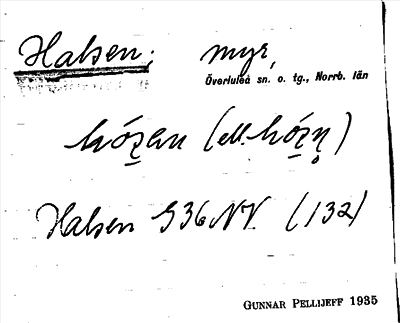 Halsen, myr,
Överluleå sn. o. tg., Norrb. län
hózan (ell. hózn̥)
Halsen S36NV. (132)
GUNNAR PELLIJEFF 1935